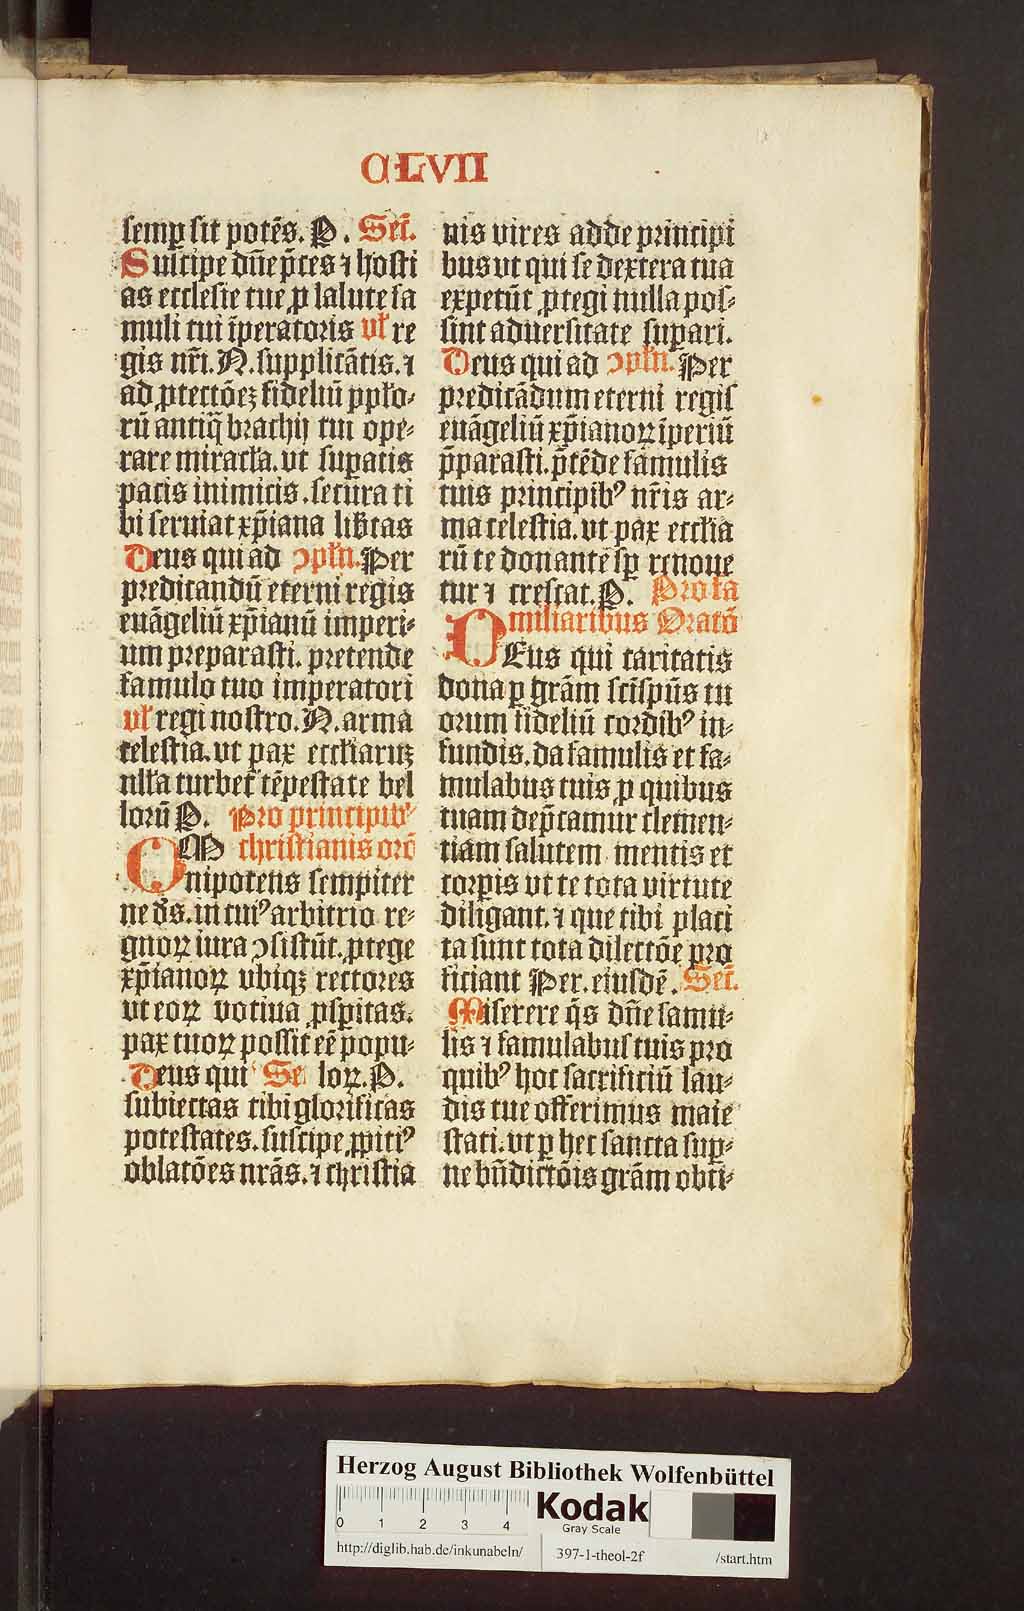 CLVII
semꝑ sit potēs. P. Secͬ.
Suscipe dn̄e p̄ces ⁊ hosti
as ecclesie tue ꝓ salute fa
muli tui īperatoris vl̓ re
gis nr̄i. N. supplicātis. ⁊
ad ꝓtectōeꝫ fideliū ppl̓o⸗
rū antiq̄ brachij tui ope⸗
rare miracl̓a. vt suꝑatis
pacis inimicis. secura ti
bi seruiat xp̄iana lib̓tas
Deus qui ad ↄpl̓n. Per
predicandū eterni regis
euāgeliū xp̄ianū imperi⸗
um preparasti. pretende
famulo tuo imperatori
vl̓ regi nostro. N. arma
celestia. vt pax eccl̓iaruꝫ
nll̓a turbet̓ tēpestate bel
lorū P. Pro principib⁹
OM christianis orō
nipotens sempiter
ne d̄s. in cui⁹ arbitrio re⸗
gnoꝝ iura ↄsistūt. ꝓtege
xp̄ianoꝝ vbiqꝫ rectores
vt eoꝝ votiua ꝓsꝑitas.
pax tuoꝝ possit eē popu⸗
Deus qui Se loꝝ. P.
subiectas tibi glorificas
potestates. suscipe ꝓpiti⁹
oblatōes nrās. ⁊ christia
nis vires adde principi
bus vt qui se dextera tua
expetūt ꝓtegi nulla pos⸗
sint aduersitate suꝑari.
Deus qui ad ↄpl̓n. Per
predicādum eterni regis
euāgeliū xp̄ianoꝝ īperiū
p̄parasti. p̄tēde famulis
tuis principib⁹ nr̄is ar⸗
ma celestia. vt pax eccl̓ia
rū te donante sꝑ renoue
tur ⁊ crescat. P. Pro fa
miliaribus Oratō
DEus qui caritatis
dona ꝑ grām sc̄i sp̄us tu
orum fideliū cordib⁹ in⸗
fundis. da famulis et fa⸗
mulabus tuis ꝓ quibus
tuam dep̄camur clemen⸗
tiam salutem mentis et
corꝑis vt te tota virtute
diligant. ⁊ que tibi placi
ta sunt tota dilectōe pro
ficiant Per. eiusdē. Secͬ.
Miserere q̄s dn̄e famu⸗
lis ⁊ famulabus tuis pro
quib⁹ hoc sacrificiū lau⸗
dis tue offerimus maie
stati. vt ꝑ hec sancta suꝑ⸗
ne bn̄dictōis grām obti⸗
Herzog August Bibliothek Wolfenbüttel
0 1 2 3 4
Kodak
Gray Scale
http://diglib.hab.de/inkunabeln/ 397-1-theol-2f /start.htm